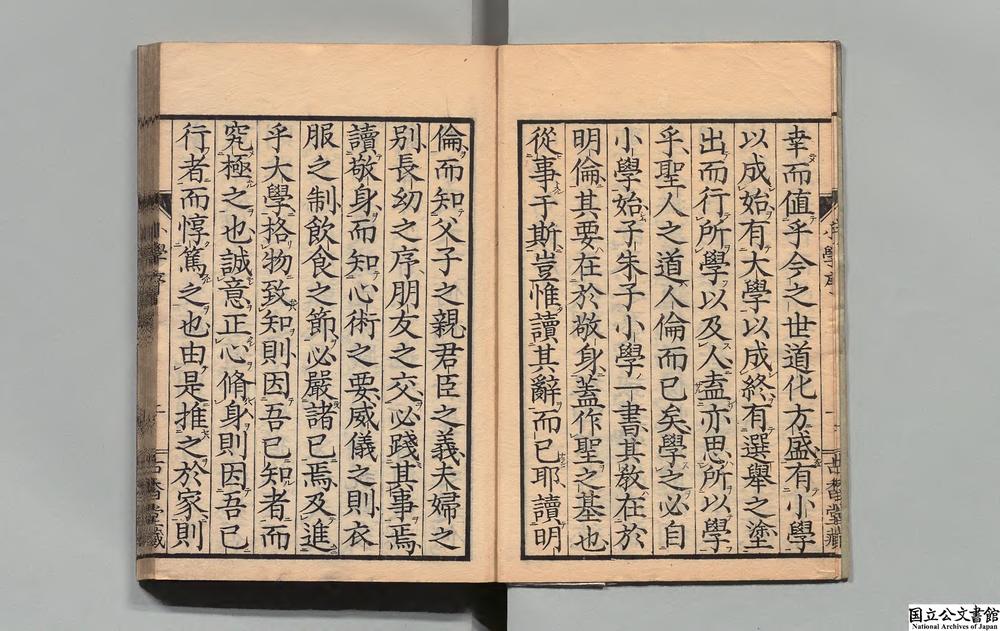 幸而値乎今之世道化方盛有小學
以成始有大學以成終有選舉之塗
出而行所學以及人盍亦思所以學
乎聖人之道人倫而已矣學之必自
小學始子朱子小學一書其敎在於
明倫其要在於敬身蓋作聖之基也
從事于斯豈惟讀其辭而已耶讀明
倫而知父子之親君臣之義夫婦之
別長幼之序朋友之交必踐其事焉
讀敬身而知心術之要威儀之則衣
服之制飲食之節必嚴諸已焉及進
乎大學格物致知則因吾已知者而
究極之也誠意正心脩身則因吾已
行者而惇篤之也由是推之於家則
小學序
國立公文書館
National Archives of Japan